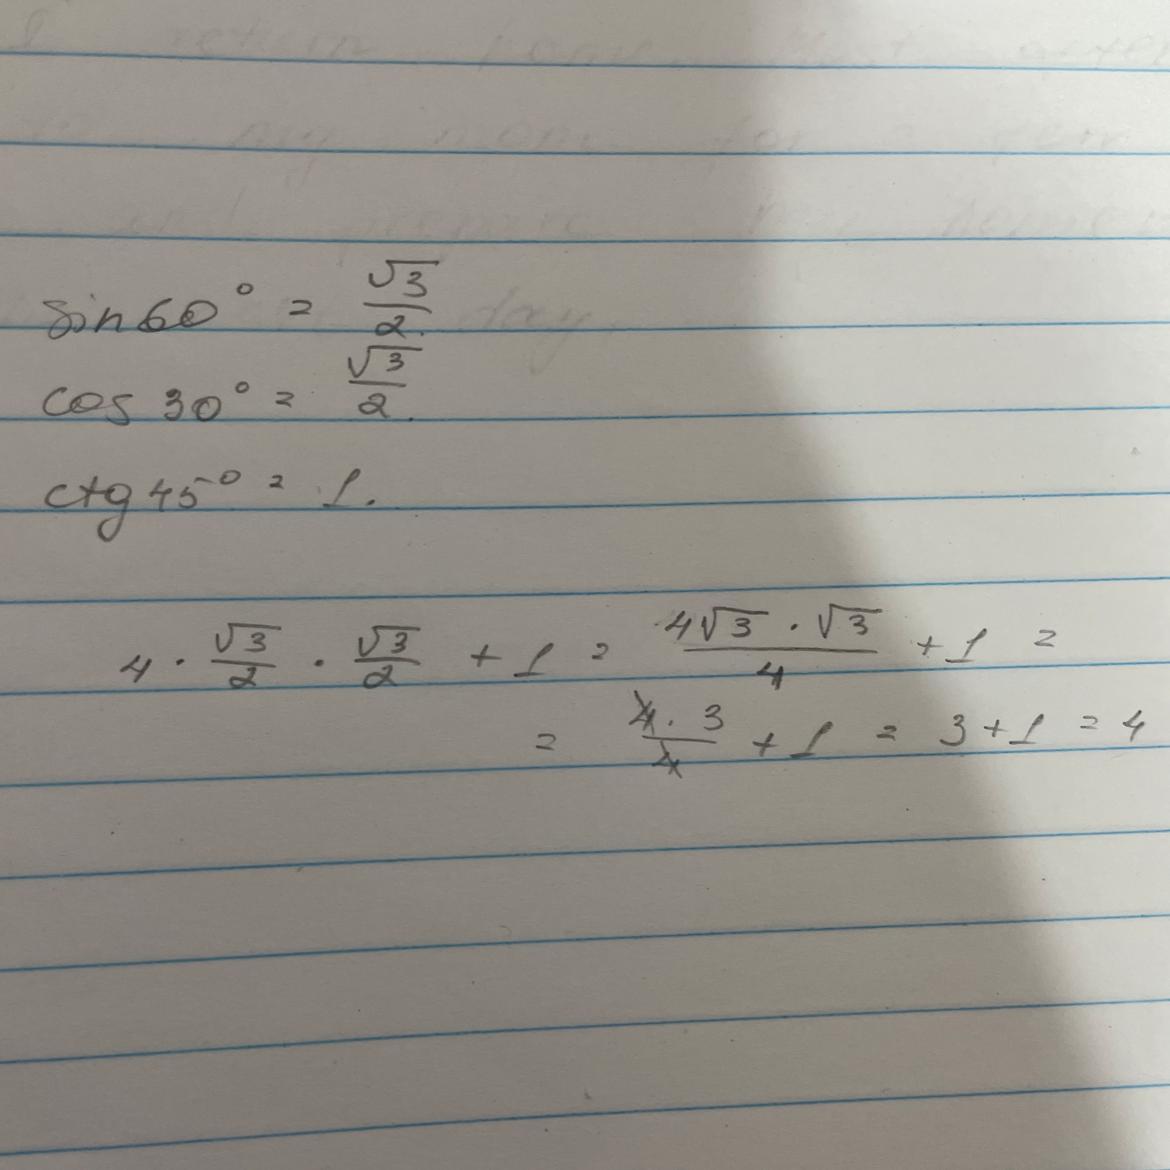 sin 60° = √3/2.
cos 30° = √3/2.
ctg 45° = 1.
4 · √3/2 · √3/2 + 1 = 4√3 · √3/4 + 1 =
= 4 · 3/4 + 1 = 3 + 1 = 4